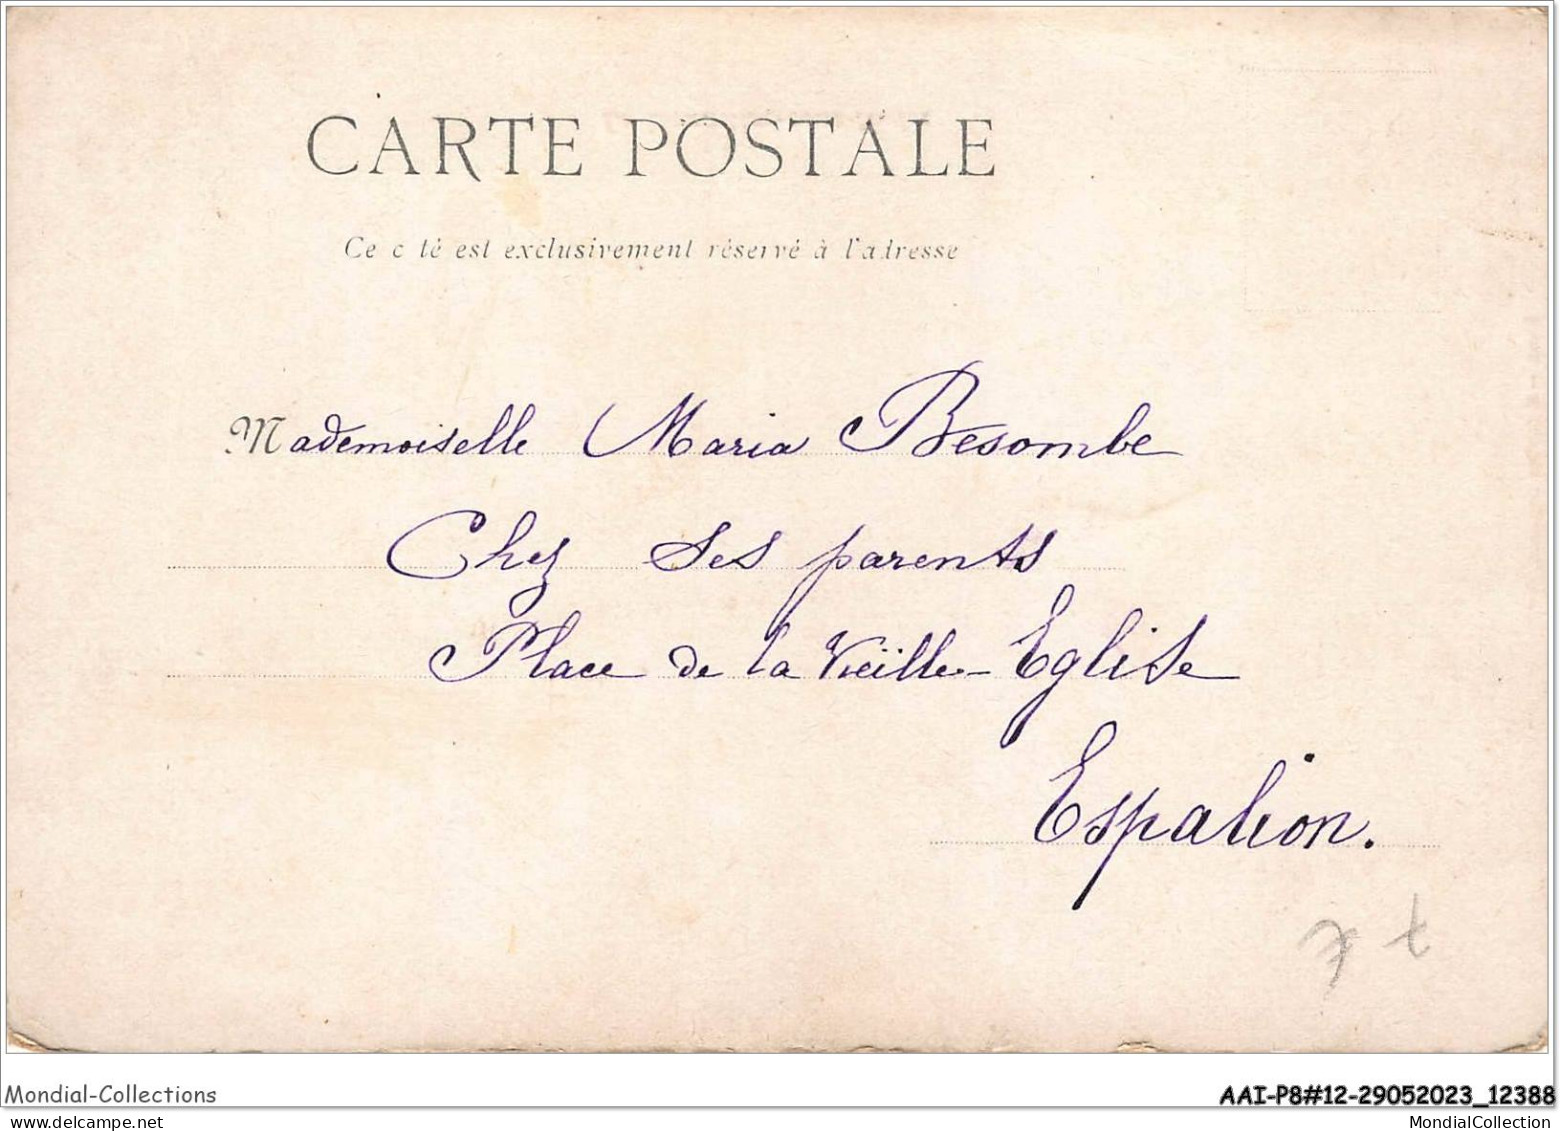 CARTE POSTALE
Ce c té est exclusivement réservé à l'adresse
Mademoiselle Maria Besombe
Chez ses parents
Place de la Vieille-Eglise
Espalion.
Mondial-Collections
AAI-P8#12-29052023_12388
delcampe.net
MondialCollection